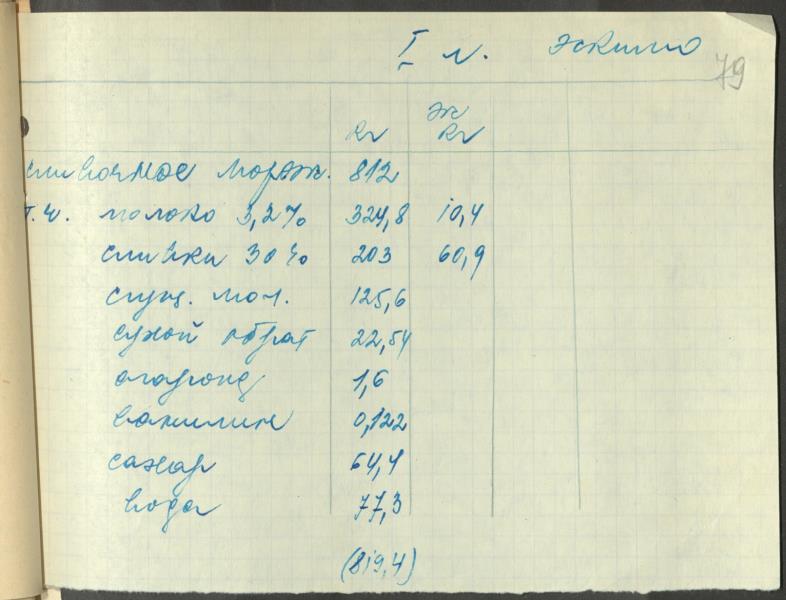 I т. эскимо
79
кг жк кг
сливочное морож. 812
т.ч. молоко 3,2% 324,8 10,4
сливки 30% 203 60,9
сгущ. мол. 125,6
сухой обрат 22,54
агароид 1,6
ванилин 0,122
сахар 64,4
вода 77,3
(819,4)